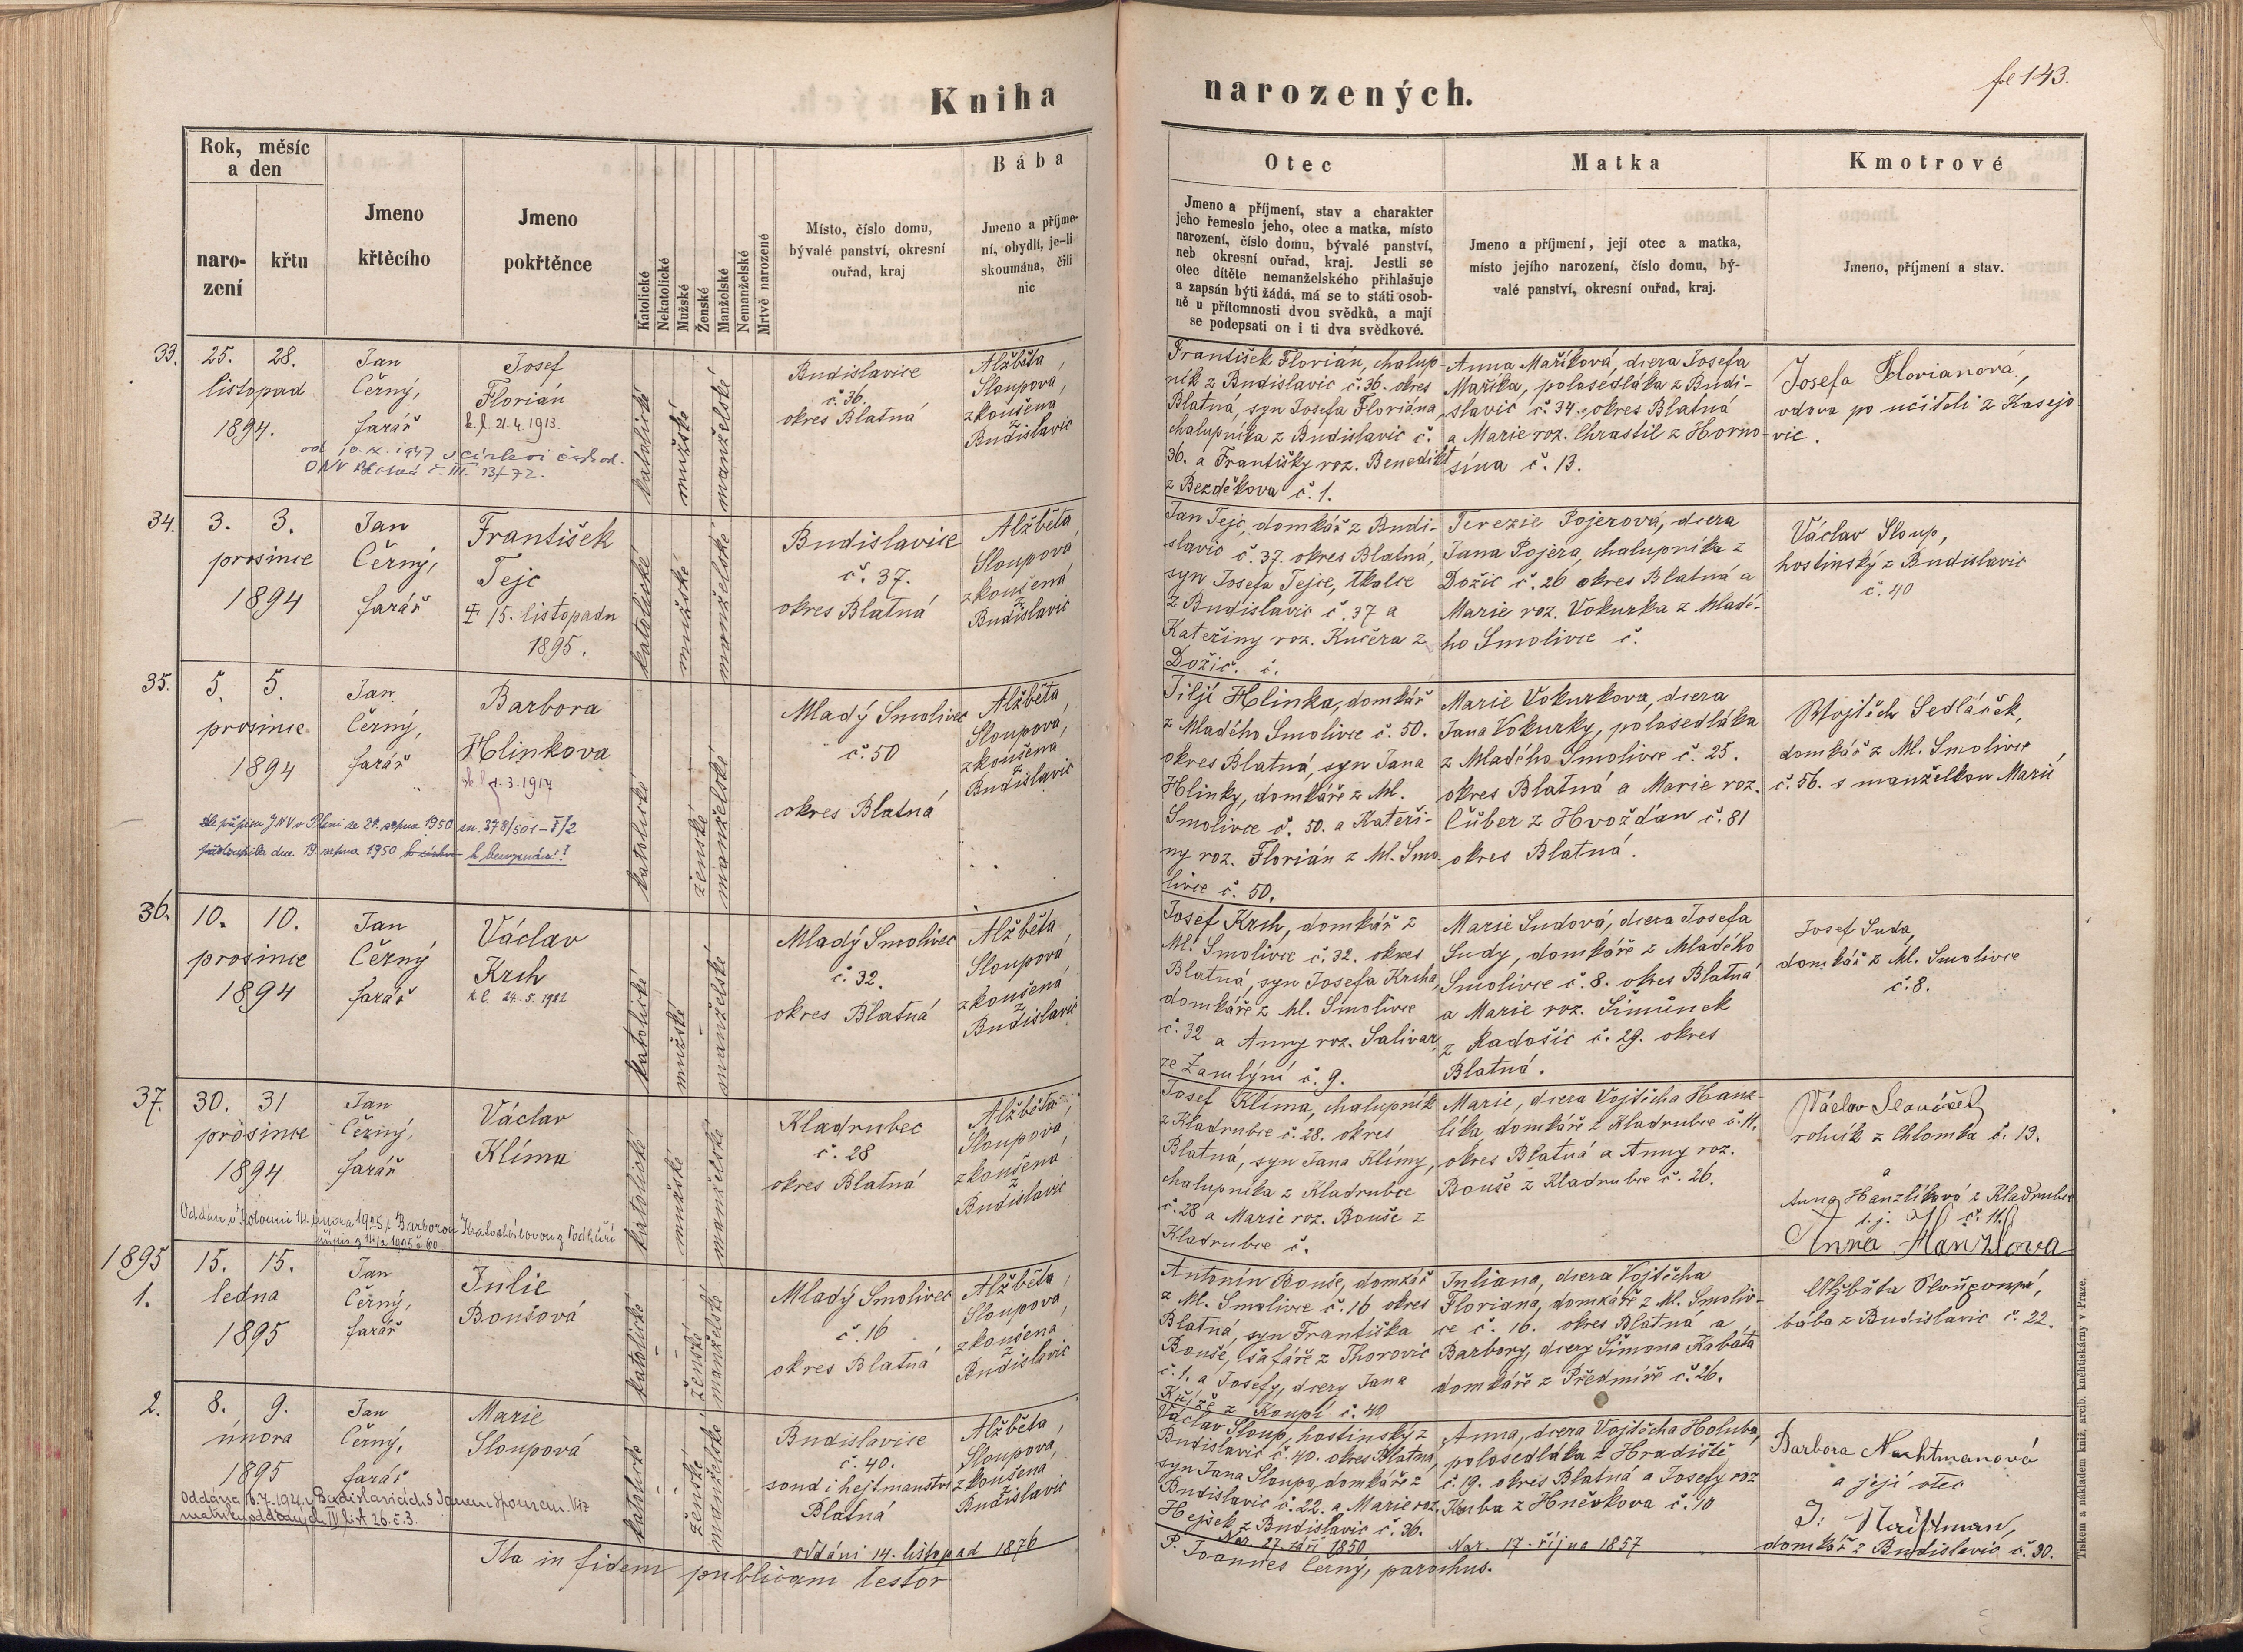 Kniha
narozených.
fol 143.
Rok, měsíc
a den
naro-
zení
křtu
Jmeno
křtěcího
Jmeno
pokřtěnce
Katolické
Nekatolické
Mužské
Ženské
Manželské
Nemanželské
Mrtvě narozené
Místo, číslo domu,
bývalé panství, okresní
ouřad, kraj
Bába
Jmeno a příjme-
ní, obydlí, je-li
skoumána, čili
nic
Otec
Jmeno a příjmení, stav a charakter
jeho řemeslo jeho, otec a matka, místo
narození, číslo domu, bývalé panství,
neb okresní ouřad, kraj. Jestli se
otec dítěte nemanželského přihlašuje
a zapsán býti žádá, má se to státi osob-
ně u přítomnosti dvou svědků, a mají
se podepsati on i ti dva svědkové.
Matka
Jmeno a příjmení, její otec a matka,
místo jejího narození, číslo domu, bý-
valé panství, okresní ouřad, kraj.
Kmotrové
Jmeno, příjmení a stav.
33.
25. 28.
listopad
1894.
Jan
Černý,
farář
Josef
Florián
k. l. 21.4.1913.
od 10.X.1947 v církvi
ONV Blatná č. III. 13/72.
katolické
mužské
manželské
Budislavice
č. 36.
okres Blatná
Alžběta
Sloupová,
zkoušená
z
Budislavic
František Florián, chalup
ník z Budislavic č. 36. okres
Blatná, syn Josefa Floriána
chalupníka z Budislavic č.
36. a Františky roz. Benedikt
z Bezděkova č. 1.
Anna Maříková, dcera Josefa
Maříka, polosedláka z Budi-
slavic č. 34. okres Blatná
a Marie roz. Chrastil z Horno-
sína č. 13.
Josefa Florianová,
vdova po učiteli z Kasejo
vic.
34.
3. 3.
prosince
1894
Jan
Černý,
farář
František
Tejc
15. listopadu
1895.
katolické
mužské
manželské
Budislavice
č. 37.
okres Blatná
Alžběta
Sloupová
zkoušená
z
Budislavic
Jan Tejc, domkář z Budi-
slavic č. 37. okres Blatná,
syn Josefa Tejce, tkalce
z Budislavic č. 37 a
Kateřiny roz. Kučera z
Dožic. č.
Terezie Pojerová, dcera
Jana Pojera, chalupníka z
Dožic č. 26 okres Blatná a
Marie roz. Vokurka z Mladé-
ho Smolivce č.
Václav Sloup,
hostinský z Budislavic
č. 40
35.
5. 5.
prosince
1894
Jan
Černý,
farář
Barbora
Hlinkova
k. l. 1.3.1917
dle přípisu JNV v Plzni ze 21. srpna 1950 zn. 378/501-V/2
dne 19. srpna 1950 k bezvyznání!
katolické
ženské
manželské
Mladý Smolivec
č. 50
okres Blatná
Alžběta
Sloupová,
zkoušená
z
Budislavic
Jiljí Hlinka, domkář
z Mladého Smolivce č. 50.
okres Blatná, syn Jana
Hlinky, domkáře z Ml.
Smolivce č. 50. a Kateři-
ny roz. Florián z Ml. Smo
livce č. 50.
Marie Vokurkova, dcera
Jana Vokurky, polosedláka
z Mladého Smolivce č. 25.
okres Blatná a Marie roz.
Čuber z Hvožďan č. 81
okres Blatná.
Wojtěch Sedláček,
domkář z Ml. Smolivce
č. 56. s manželkou Marií
36.
10. 10.
prosince
1894
Jan
Černý
farář
Václav
Krch
k l. 24.5.1922
katolické
mužské
manželské
Mladý Smolivec
č. 32.
okres Blatná
Alžběta
Sloupová
zkoušená
z
Budislavic
Josef Krch, domkář z
Ml. Smolivce č. 32. okres
Blatná, syn Josefa Krcha,
domkáře z Ml. Smolivce
č. 32 a Anny roz. Salivar,
ze Zamlýní č. 9.
Marie Sudová, dcera Josefa
Sudy, domkáře z Mladého
Smolivce č. 8. okres Blatná
a Marie roz. Šimůnek
z Radošic č. 29. okres
Blatná.
Josef Suda,
domkář z Ml. Smolivce
č. 8.
37.
30. 31
prosince
1894
Jan
Černý,
farář
Václav
Klíma
Oddán v 14. února 1925 s Barborou
katolické
mužské
manželské
Kladrubec
č. 28
okres Blatná
Alžběta
Sloupová,
zkoušená
z
Budislavic
Josef Klíma, chalupník
z Kladrubce č. 28. okres
Blatná, syn Jana Klímy,
chalupníka z Kladrubce
č. 28 a Marie roz. Bouše z
Kladrubce č.
Marie, dcera Vojtěcha Hanz-
líka, domkáře z Kladrubce č. 11.
okres Blatná a Anny roz.
Bouše z Kladrubce č. 26.
Václav
rolník z Chlomka č. 13.
a
Anna Hanzlíková z Kladrubce
t. j. č. 11
Anna Hanzlova
1895
1.
15. 15.
ledna
1895
Jan
Černý,
farář
Julie
Boušová
katolické
ženské
manželské
Mladý Smolivec
č. 16
okres Blatná
Alžběta
Sloupová,
zkoušená
z
Budislavic
Antonín Bouše, domkář
z Ml. Smolivce č. 16 okres
Blatná, syn Františka
Bouše, šafáře z Thorovic
č. 1. a Josefy, dcery Jana
Kříže z Koupí č. 40
Juliana, dcera Vojtěcha
Floriana, domkáře z Ml. Smoliv-
ce č. 16. okres Blatná a
Barbory, dcery Šimona Kabáta
domkáře z Předmíře č. 26.
Alžběta Sloupová,
bába z Budislavic č. 22.
2.
8. 9.
února
1895
Jan
Černý,
farář
Marie
Sloupová
Oddána 6.7.1921 v Budislavicích s Janem Viz
matriku oddaných IV list 26. č. 3.
katolické
ženské
manželské
Budislavice
č. 40.
soud i hejtmanství
Blatná
oddáni 14. listopad 1876
Alžběta
Sloupová,
zkoušená
z
Budislavic
Václav Sloup, hostinský z
Budislavic č. 40. okres Blatná
syn Jana Sloupa, domkáře z
Budislavic č. 22. a Marie roz.
Hejsek z Budislavic č. 36.
Nar. 27. září 1850
Anna, dcera Vojtěcha Holuba,
polosedláka z Hradiště
č. 19. okres Blatná a Josefy roz
Kuba z Hněvkova č. 10
Nar. 17. října 1857
Barbora Nachtmanová
a její otec
J. Nachtman,
domkář z Budislavic č. 30.
Ita in fidem publicam testor
P. Joannes Černý, parochus.
Tiskem a nákladem kníž. arcib. kněhtiskárny v Praze.